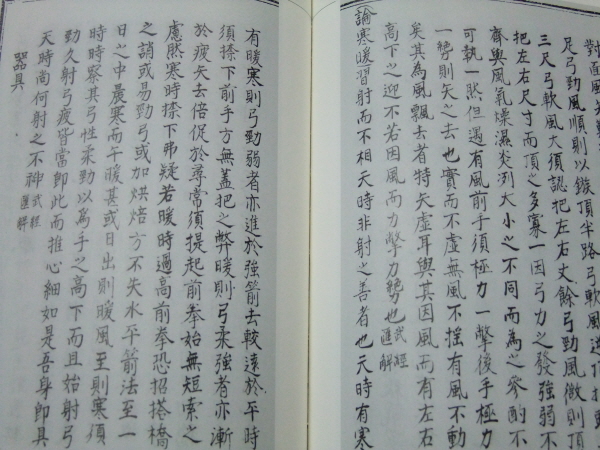 對面風
足弓勁風順則以鏃頂半路弓軟風逆頂
三尺弓軟風大須認把左右丈餘弓勁風微則頂
把左右尺寸而頂之多寡一因弓力之發強弱不
齊與風氣燥濕炎冽大小之不同而為之參酌不
可執一然但遇有風前手須極力一擎後手極力
一勢則矢之去也實而不虛無風不搖有風不動
矣其為風飄去者特矢虛耳與其因風而有左右
高下之迎不若因風而力擎力絕力也武經匯解
論寒暖習射而不相天時非射之善者也天時有寒
有暖寒則弓勁弱者亦進於強箭去較遠於平時
須捺下前手方無蓋把之弊暖則弓柔強者亦漸
於疲矢去倍促於尋常須提起前拳始無短索之
慮然寒時捺下弗疑若暖時過高前拳恐招搭橋
之誚或易勁弓或加烘焙方不失水平箭法至一
日之中晨寒而午暖甚或日出則暖風至則寒須
時時察其弓性柔勁以為手之高下而且始射弓
勁久射弓疲皆當即此而推心細如是吾身即具
天時尚何射之不神武經匯解
器具